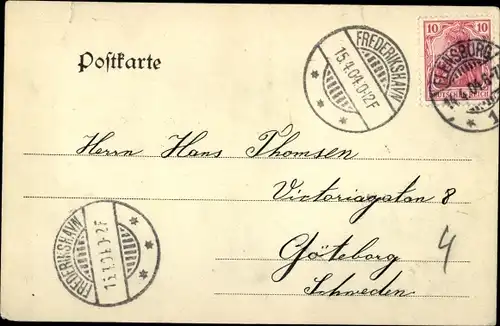 Postkarte
FREDERIKSHAVN
15.4.04.0-12F
10 10
FLENSBURG
1
Herrn Hans Thomsen
Victoriagatan 8
Göteborg
4
Schweden
FREDERIKSHAVN